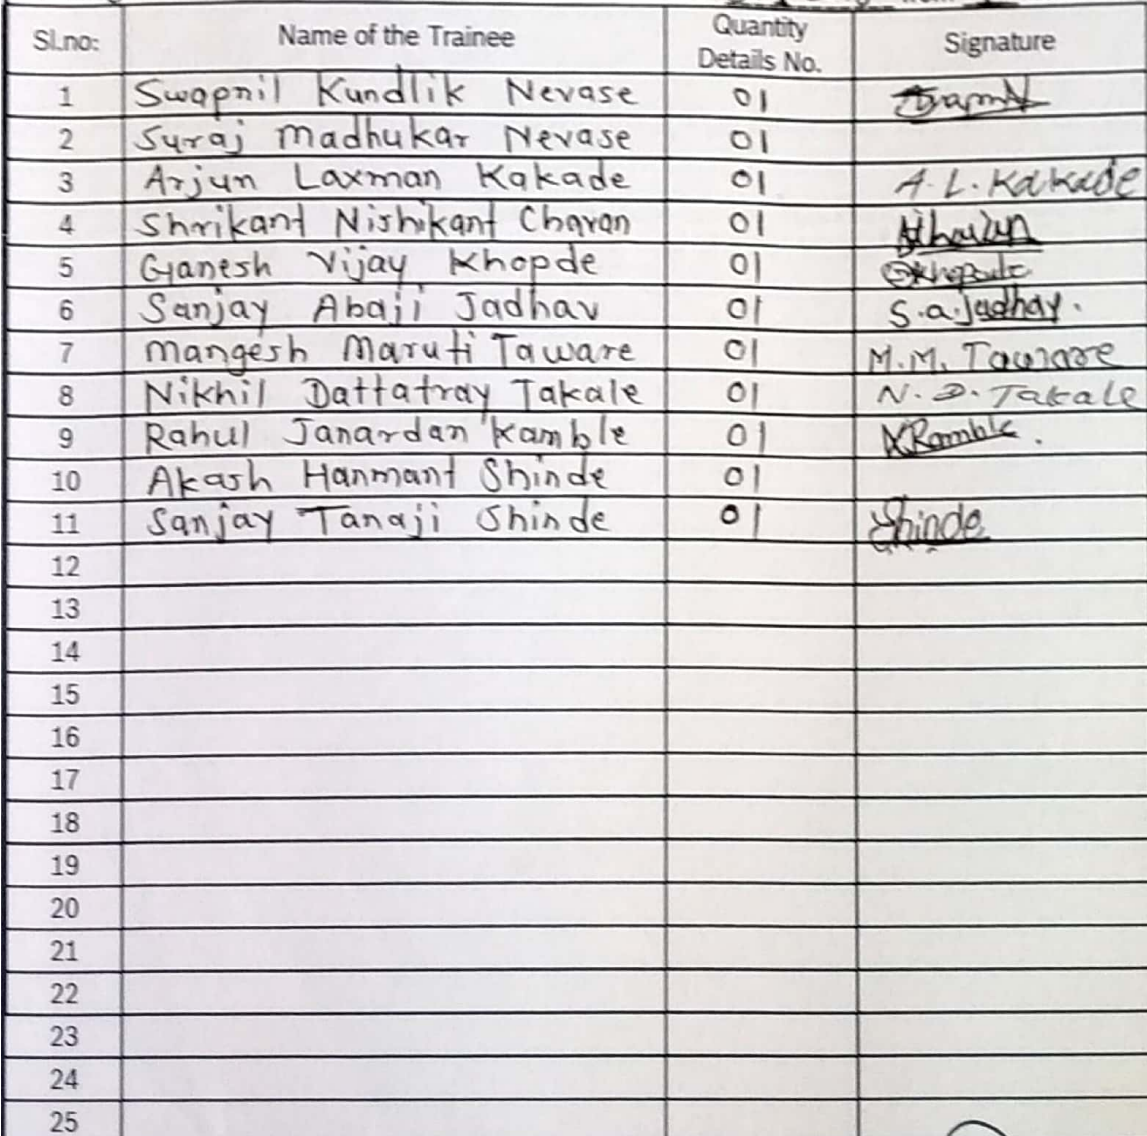 Sl.no: Name of the Trainee Quantity Details No. Signature
1 Swapnil Kundlik Nevase 01
2 Suraj Madhukar Nevase 01
3 Arjun Laxman Kakade 01 A. L. Kakade
4 Shrikant Nishikant Chavan 01
5 Ganesh Vijay Khopde 01
6 Sanjay Abaji Jadhav 01 S.a.Jadhav.
7 Mangesh Maruti Taware 01 M.M. Taware
8 Nikhil Dattatray Takale 01 N. D. Takale
9 Rahul Janardan Kamble 01 RKamble.
10 Akash Hanmant Shinde 01
11 Sanjay Tanaji Shinde 01 Shinde
12
13
14
15
16
17
18
19
20
21
22
23
24
25